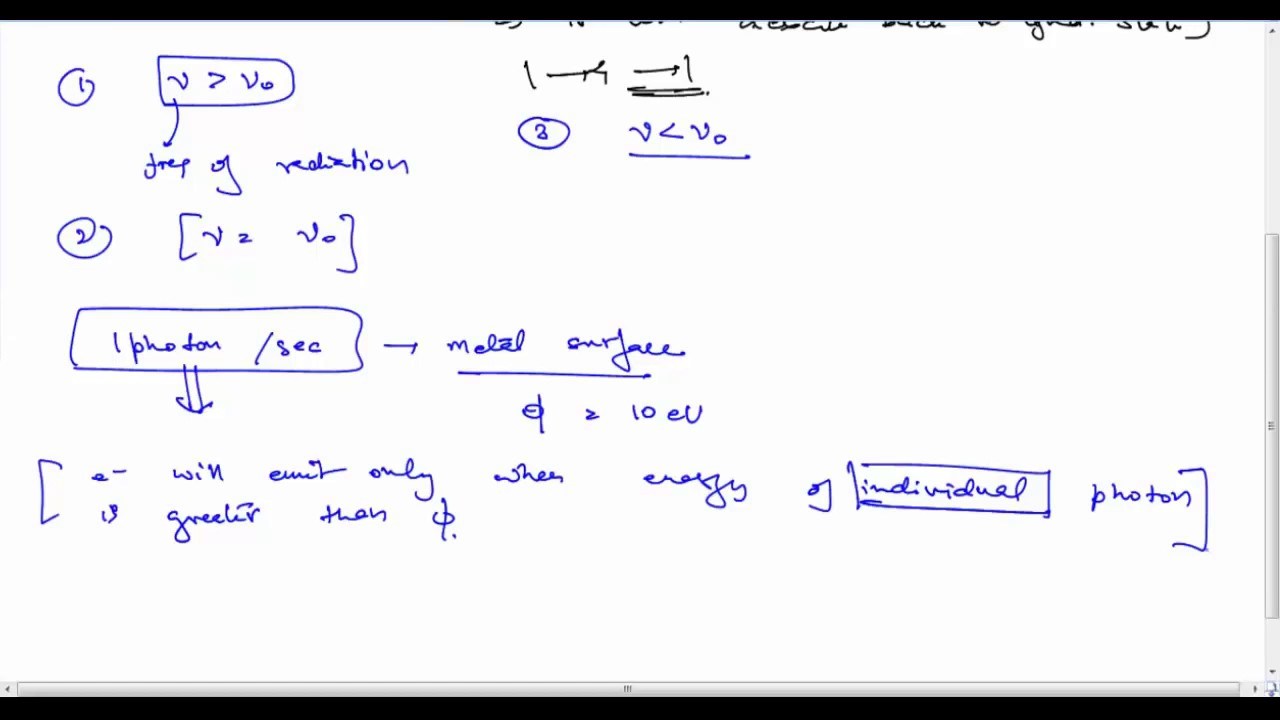 back to
① ν > ν₀
freq of radiation
③ ν < ν₀
② [ν = ν₀]
1 photon /sec → metal surface
ϕ = 10 eV
[e⁻ will emit only when energy of individual photon]
is greater than ϕ.